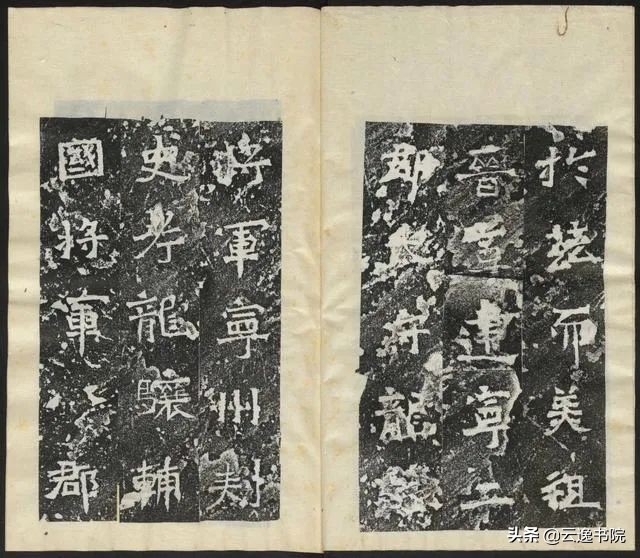 於茲而美祖
晉寧建寧二
郡太守龍驤
將軍寧州刾
史考龍驤輔
國將軍八郡
头条 @云逸书院